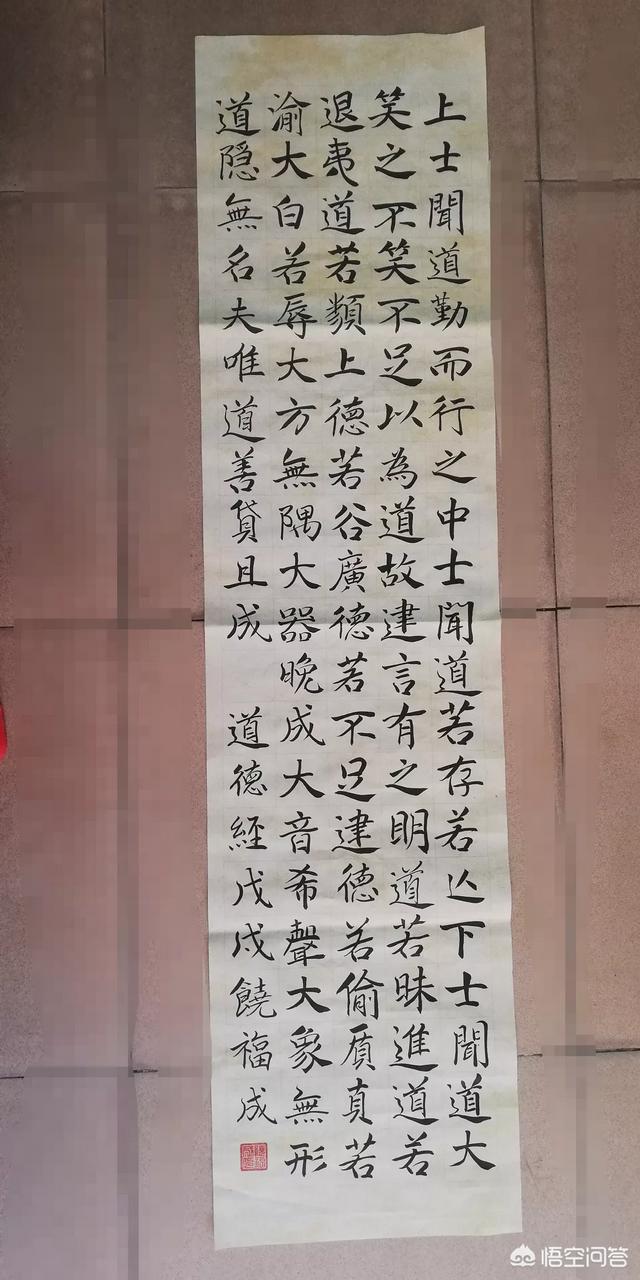 上士聞道勤而行之中士聞道若存若亾下士聞道大
笑之不笑不足以為道故建言有之明道若昧進道若
退夷道若類上德若谷廣德若不足建德若偷質真若
渝大白若辱大方無隅大器晚成大音希聲大象無形
道隐無名夫唯道善貸且成 道德經戊戌饒福成
悟空问答